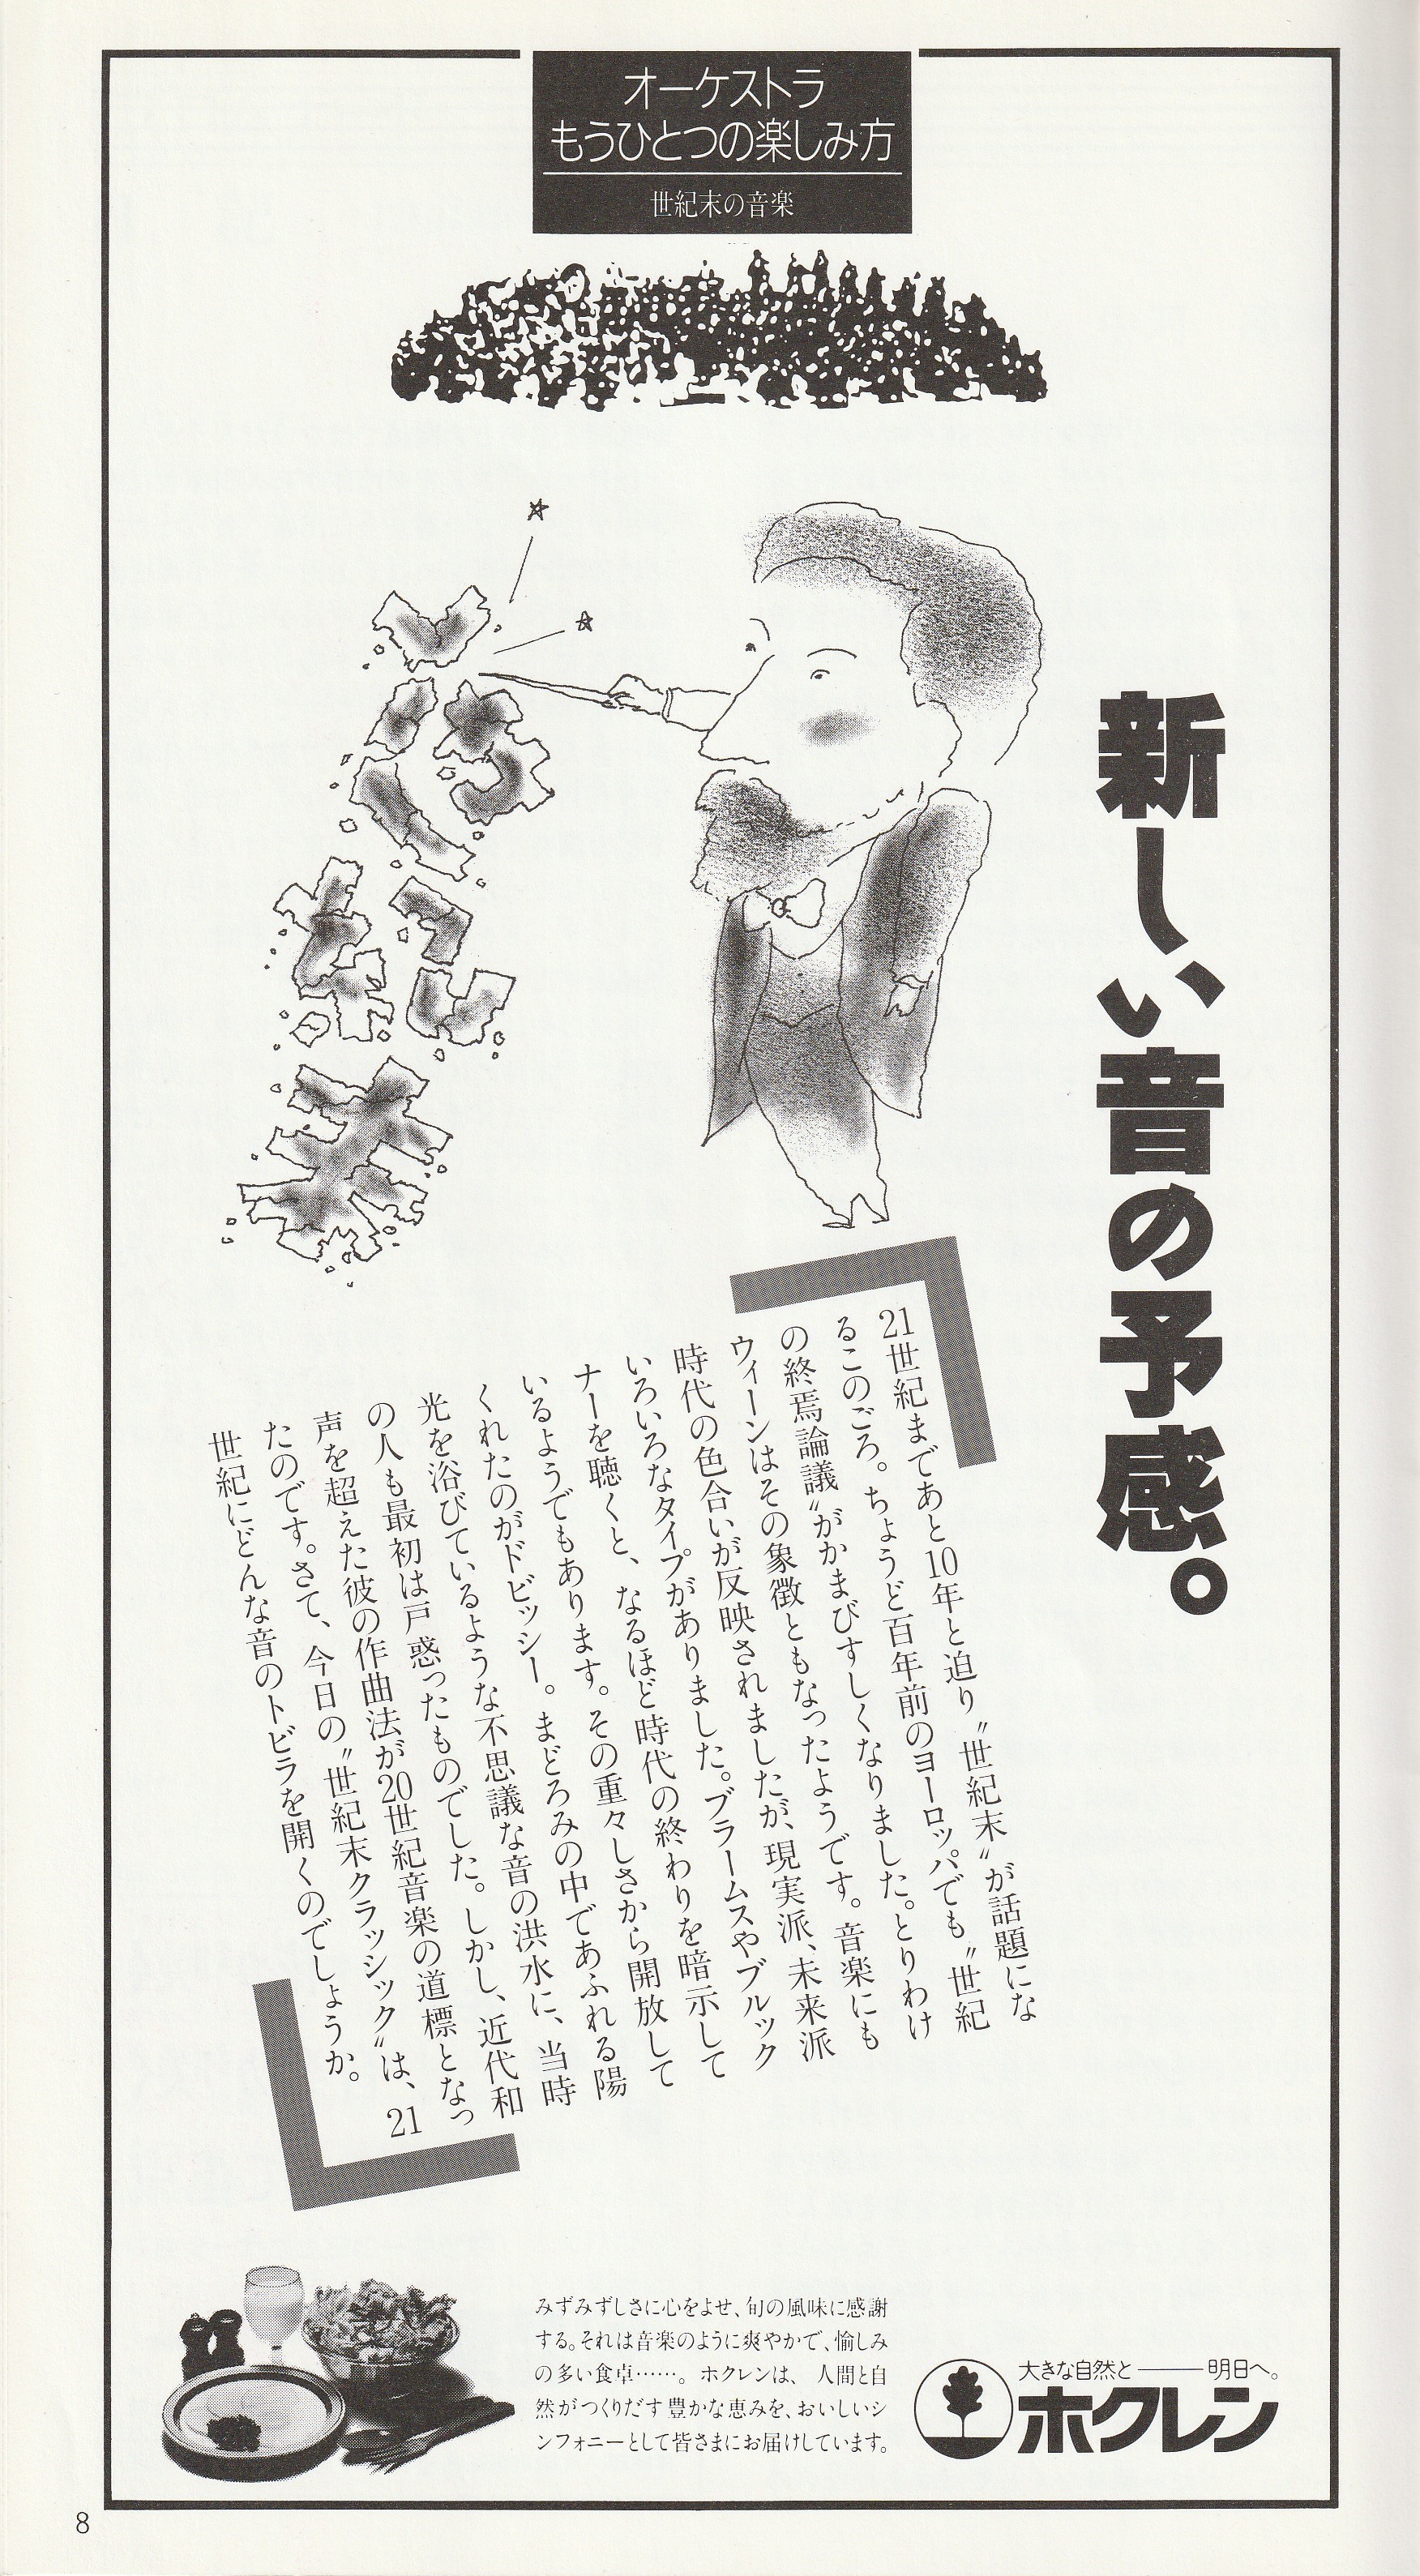 オーケストラ
もうひとつの楽しみ方
世紀末の音楽
新しい音の予感。
世紀末
21世紀まであと10年と迫り〝世紀末〟が話題にな
るこのごろ。ちょうど百年前のヨーロッパでも〝世紀
の終焉論議〟がかまびすしくなりました。とりわけ
ウィーンはその象徴ともなったようです。音楽にも
時代の色合いが反映されましたが、現実派、未来派
いろいろなタイプがありました。ブラームスやブルック
ナーを聴くと、なるほど時代の終わりを暗示して
いるようでもあります。その重々しさから開放して
くれたのがドビッシー。まどろみの中であふれる陽
光を浴びているような不思議な音の洪水に、当時
の人も最初は戸惑ったものでした。しかし、近代和
声を超えた彼の作曲法が20世紀音楽の道標となっ
たのです。さて、今日の〝世紀末クラッシック〟は、21
世紀にどんな音のトビラを開くのでしょうか。
みずみずしさに心をよせ、旬の風味に感謝
する。それは音楽のように爽やかで、愉しみ
の多い食卓……。ホクレンは、人間と自
然がつくりだす豊かな恵みを、おいしいシ
ンフォニーとして皆さまにお届けしています。
大きな自然と――明日へ。
ホクレン
8